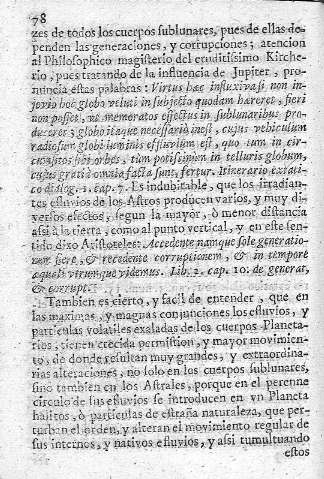 78
zes de todos los cuerpos sublunares, pues de ellas de-
penden las generaciones, y corrupciones; atencion
al Philosophico magisterio del eruditissimo Kirche-
rio, pues tratando de la influencia de Jupiter, pro-
nuncia estas palabras: Virtus hæc influxiva si non in-
jovio hoc globo veluti in subjecto quodam hæreret, fieri
non posset, ut memoratos effectus in sublunaribus pro-
duceret; globo itaque necessariò inest, cujus vehiculum
radiosum globi luminis effluvium est, quo tum in cir-
cumsitos sibi orbes, tùm potissimùm in telluris globum,
cujus gratia omnia facta sunt, fertur. Itinerario extati-
co dialog. 1. cap. 7. Es indubitable, que los irradian-
tes efluvios de los Astros producen varios, y muy di-
versos efectos, segun la mayor, ò menor distancia
assi à la tierra, como al punto vertical, y en este sen-
tido dixo Aristoteles: Accedente namque sole generatio-
nem fieri, & recedente corruptionem, & in tempore
æquali utrunque videmus. Lib. 2. cap. 10. de generat,
& corrupt.
Tambien es cierto, y facil de entender, que en
las maximas, y magnas conjunciones los efluvios, y
particulas volatiles exaladas de los cuerpos Planeta-
rios, tienen crecida permistion, y mayor movimien-
to, de donde resultan muy grandes, y extraordina-
rias alteraciones, no solo en los cuerpos sublunares,
sino tambien en los Astrales, porque en el perenne
circulo de sus efluvios se introducen en vn Planeta
halitos, ò particulas de estraña naturaleza, que per-
turban el orden, y alteran el movimiento regular de
sus internos, y nativos efluvios, y assi tumultuando
estos